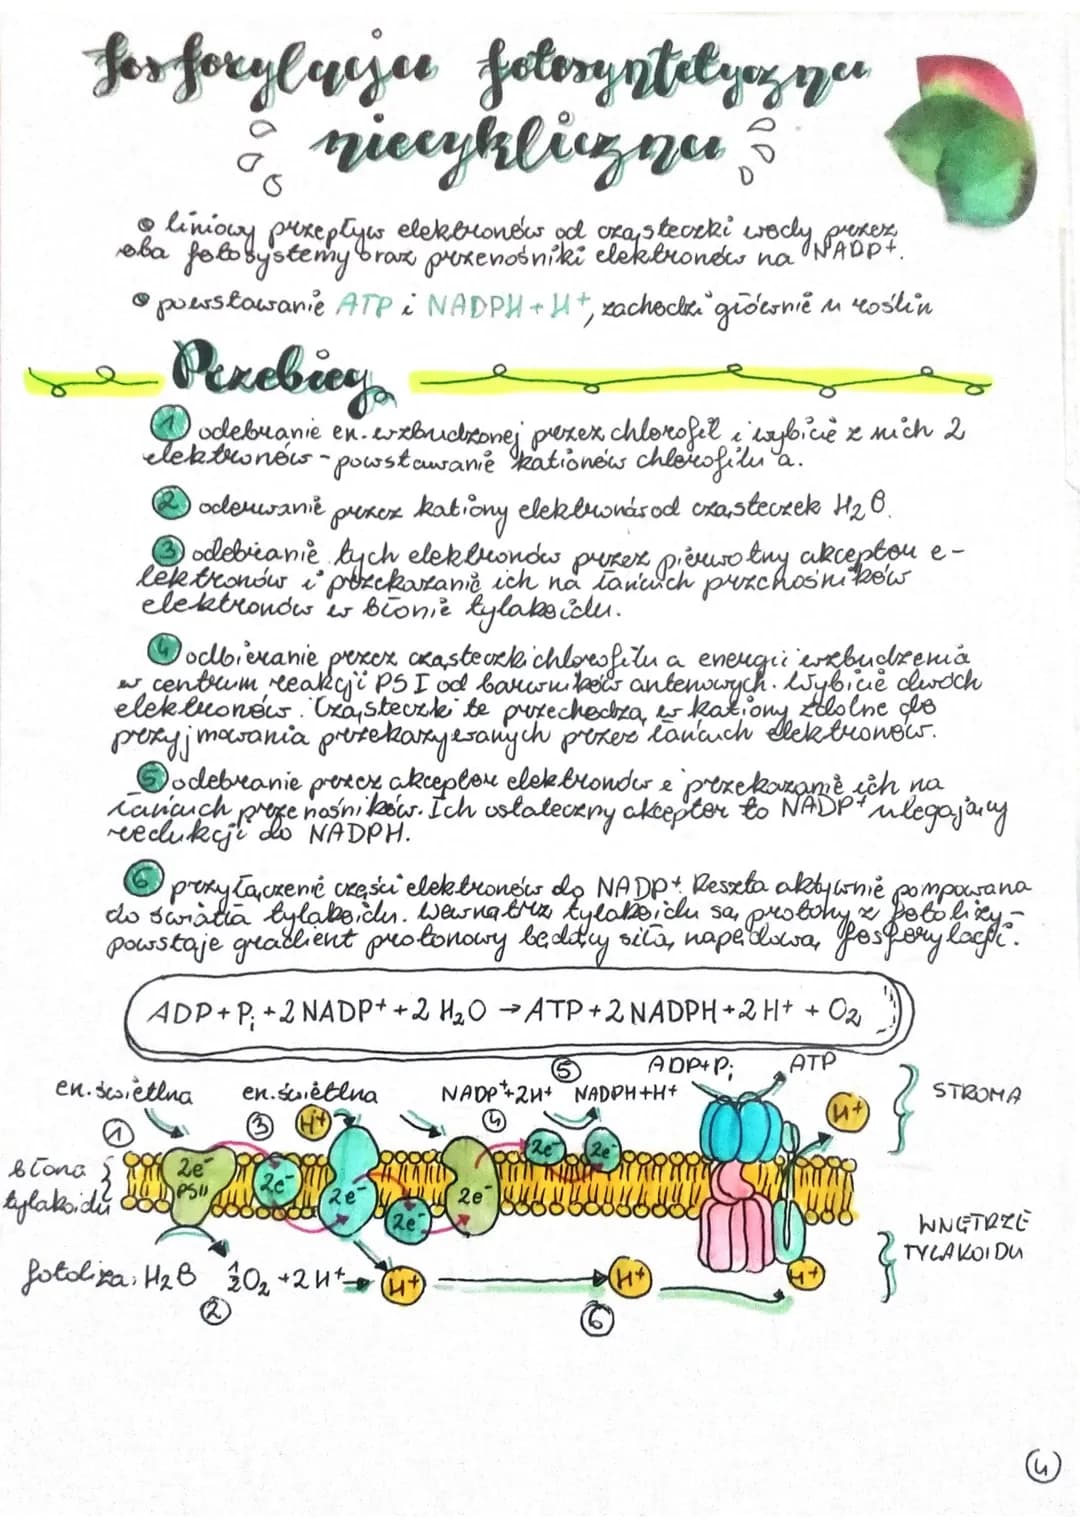 fosforylacja fotosyntetyczna
niecykliczna
liniowy przepływ elektronów od cząsteczki wody przez
oba fotosystemy oraz przenośniki elektronów na NADP+.
powstawanie ATP i NADPH+H+, zachodzi głównie u roślin
Przebieg
1 odebranie en. wzbudzonej przez chlorofil i wybicie z nich 2
elektronów - powstawanie kationów chlorofilu a.
2 oderwanie przez kationy elektronów od cząsteczek H2O.
3 odebranie tych elektronów przez pierwotny akceptor e-
lektronów i przekazanie ich na łańcuch przenośników
elektronów w błonie tylakoidu.
4 odbieranie przez cząsteczki chlorofilu a energii wzbudzenia
w centrum reakcji PS I od barwników antenowych. Wybicie dwóch
elektronów. Cząsteczki te przechodzą w kationy zdolne do
przyjmowania przekazywanych przez łańcuch elektronów.
5 odebranie przez akceptor elektronów i przekazanie ich na
łańcuch przenośników. Ich ostateczny akceptor to NADP+ ulegający
redukcji do NADPH.
6 przyłączenie części elektronów do NADP+. Reszta aktywnie pompowana
do światła tylakoidu. Wewnątrz tylakoidu są protony z fotolizy -
powstaje gradient protonowy będący siłą napędową fosforylacji.
ADP+Pi+2NADP+ +2H2O → ATP+2NADPH+2H+ + O2
5 ADP+Pi ATP
en. świetlna en. świetlna NADP++2H+ NADPH+H+ STROMA
1 3 H+ 4 H+
błona
tylakoidu
2e- PSII 2e- 2e- 2e- 2e- 2e- 2e-
WNĘTRZE
TYLAKOIDU
fotoliza: H2O ½O2+2H+ H+ H+ H+
2 6
4